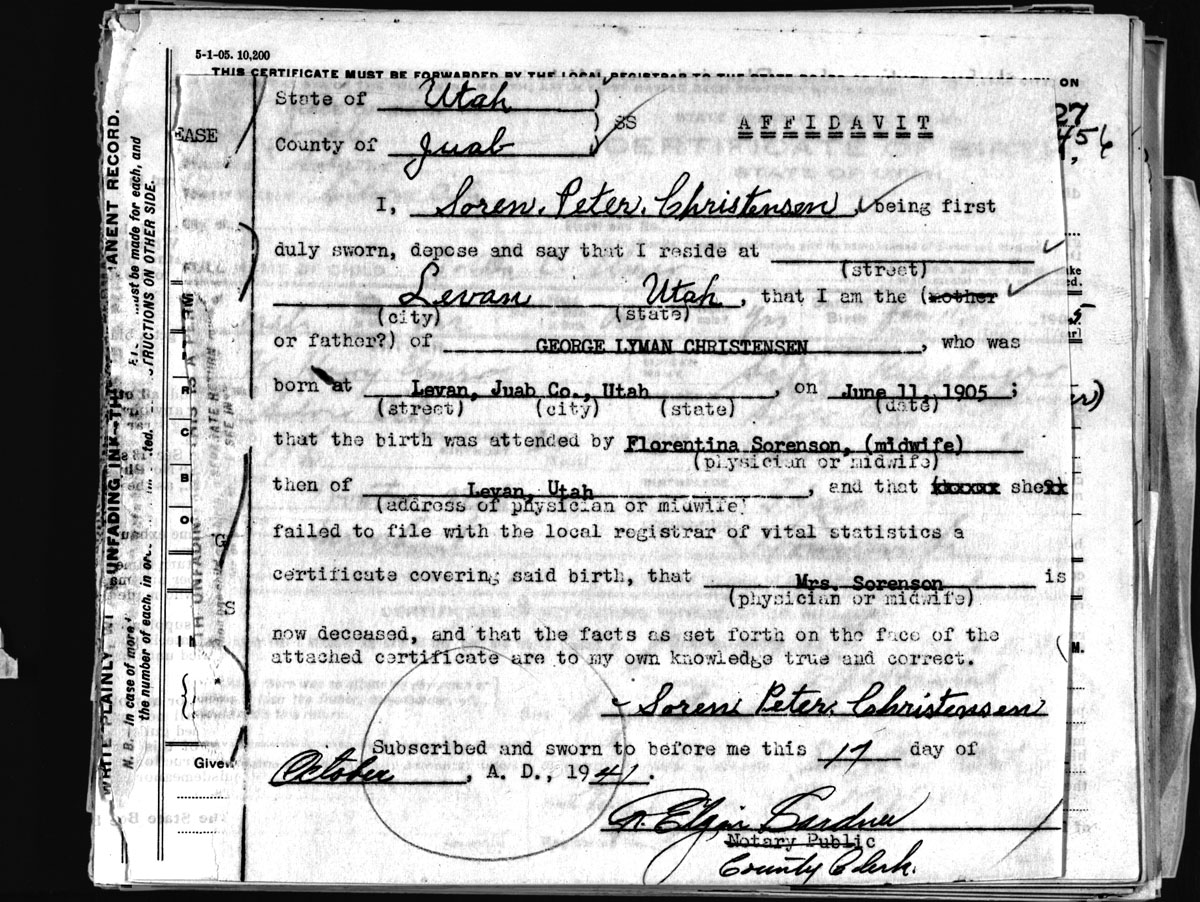 5-1-05. 10,200
THIS CERTIFICATE MUST BE FORWARDED BY THE LOCAL REGISTRAR TO THE STATE
ON
State of Utah
SS AFFIDAVIT
County of Juab
27
456
EASE
I, Soren Peter Christensen, being first
duly sworn, depose and say that I reside at
(street)
Levan Utah, that I am the (mother
(city) (state)
or father?) of GEORGE LYMAN CHRISTENSEN, who was
born at Levan, Juab Co., Utah, on June 11, 1905;
(street) (city) (state) (date)
that the birth was attended by Florentina Sorenson, (midwife)
(physician or midwife)
then of Levan, Utah, and that she
(address of physician or midwife)
failed to file with the local registrar of vital statistics a
certificate covering said birth, that Mrs. Sorenson is
(physician or midwife)
now deceased, and that the facts as set forth on the face of the
attached certificate are to my own knowledge true and correct.
Soren Peter Christensen
Subscribed and sworn to before me this 17 day of
October, A. D., 1941.
Notary Public
County Clerk.
Given
WRITE PLAINLY UNFADING INK
ANENT RECORD.
N. B.—In case of more
must be made for each, and
the number of each, in
STRUCTIONS ON OTHER SIDE.